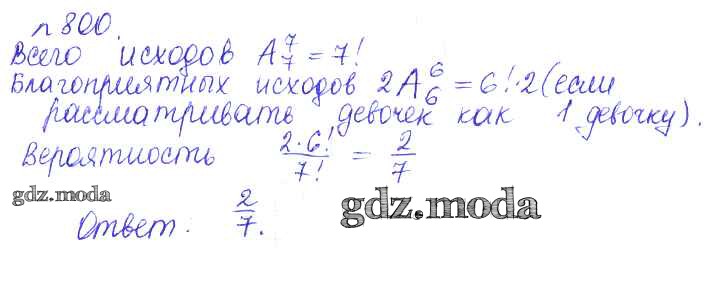 № 800.
Всего исходов A₇⁷ = 7!
Благоприятных исходов 2A₆⁶ = 6!·2 (если
рассматривать девочек как 1 девочку).
Вероятность 2·6!/7! = 2/7
gdz.moda
Ответ: 2/7.
gdz.moda